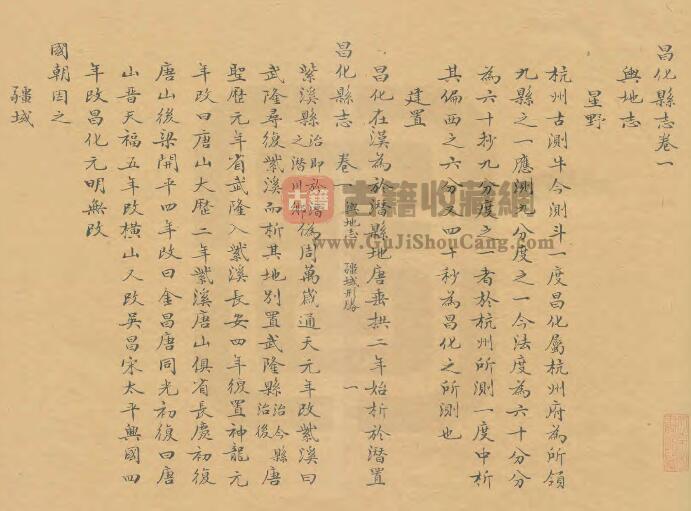 昌化縣志卷一
輿地志
星野
杭州古測牛今測斗一度昌化屬杭州府為所領
九縣之一應測九分度之一今法度為六十分分
為六十秒九分度之一者於杭州所測一度中析
其偏西之六分又四十秒為昌化之所測也
建置
昌化在漢為於潛縣地唐垂拱二年始析於潛置
昌化縣志 卷一 輿地志 疆域形勝 一
紫溪縣治即於潛之潛川鄉偽周萬歲通天元年改紫溪曰
武隆尋復紫溪而析其地別置武隆縣治今縣治後唐
聖歷元年省武隆入紫溪長安四年復置神龍元
年改曰唐山大歷二年紫溪唐山俱省長慶初復
唐山後梁開平四年改曰金昌唐同光初復曰唐
山晉天福五年改橫山又改吳昌宋太平興國四
年改昌化元明無改
國朝因之
疆域
古籍 古籍收藏網
www.GuJiShouCang.com